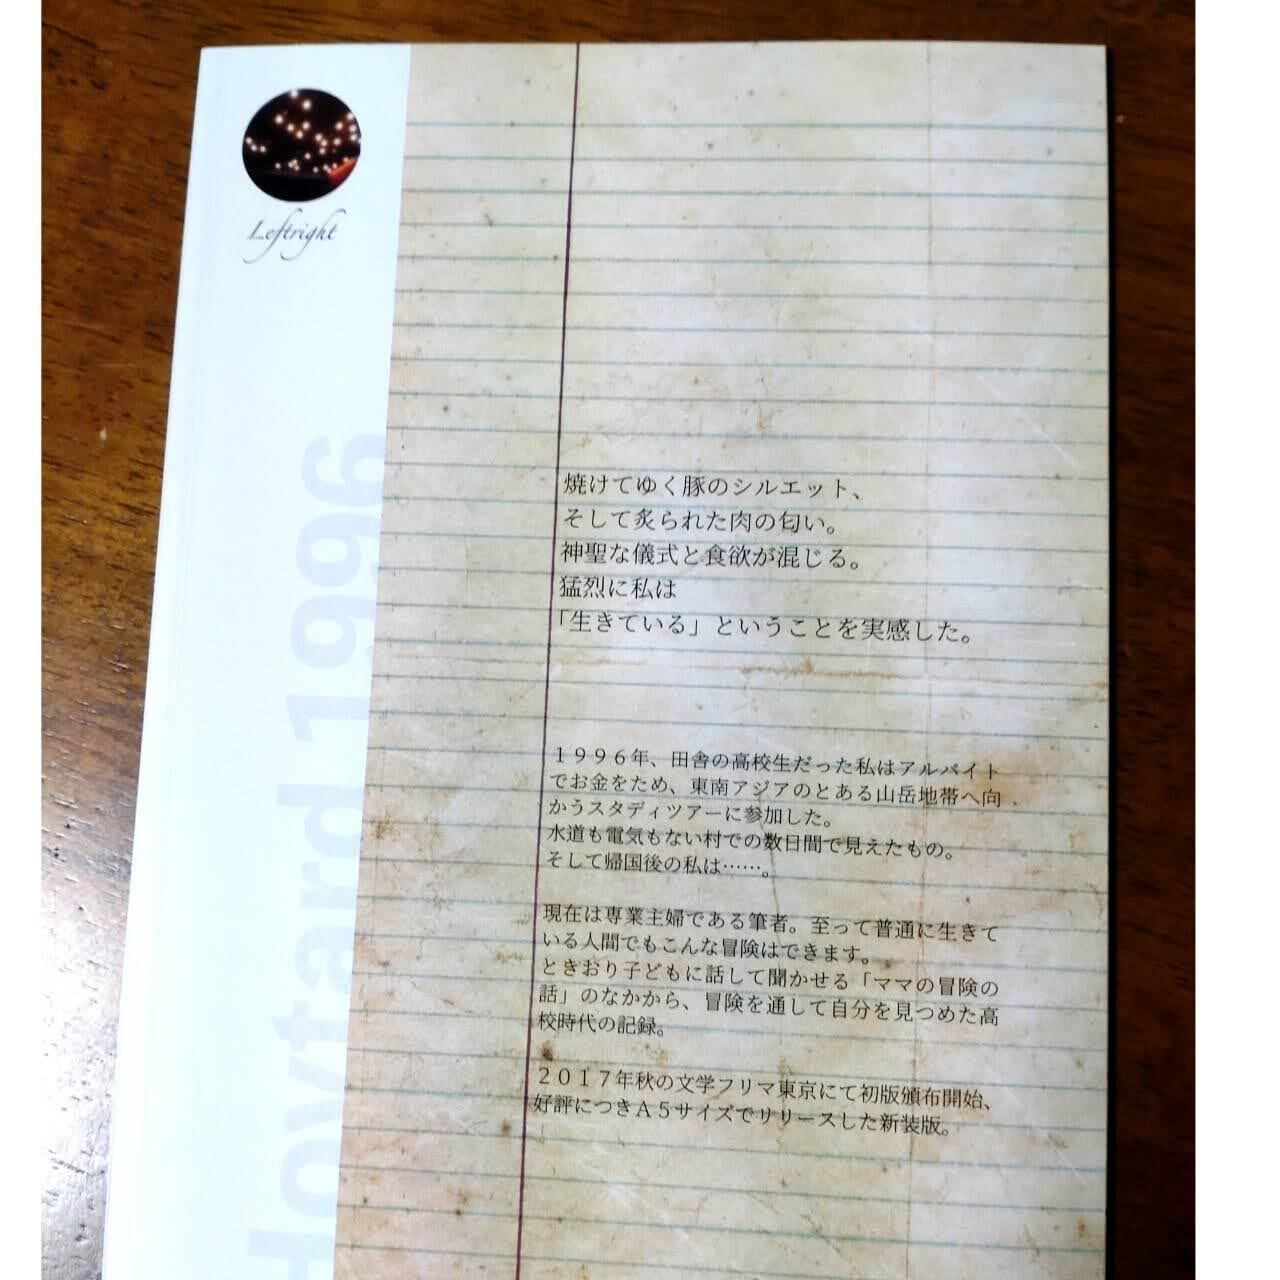 Leftright
焼けてゆく豚のシルエット、
そして炙られた肉の匂い。
神聖な儀式と食欲が混じる。
猛烈に私は
「生きている」ということを実感した。
１９９６年、田舎の高校生だった私はアルバイト
でお金をため、東南アジアのとある山岳地帯へ向
かうスタディツアーに参加した。
水道も電気もない村での数日間で見えたもの。
そして帰国後の私は……。
現在は専業主婦である筆者。至って普通に生きて
いる人間でもこんな冒険はできます。
ときおり子どもに話して聞かせる「ママの冒険の
話」のなかから、冒険を通して自分を見つめた高
校時代の記録。
２０１７年秋の文学フリマ東京にて初版頒布開始、
好評につきＡ５サイズでリリースした新装版。
1996